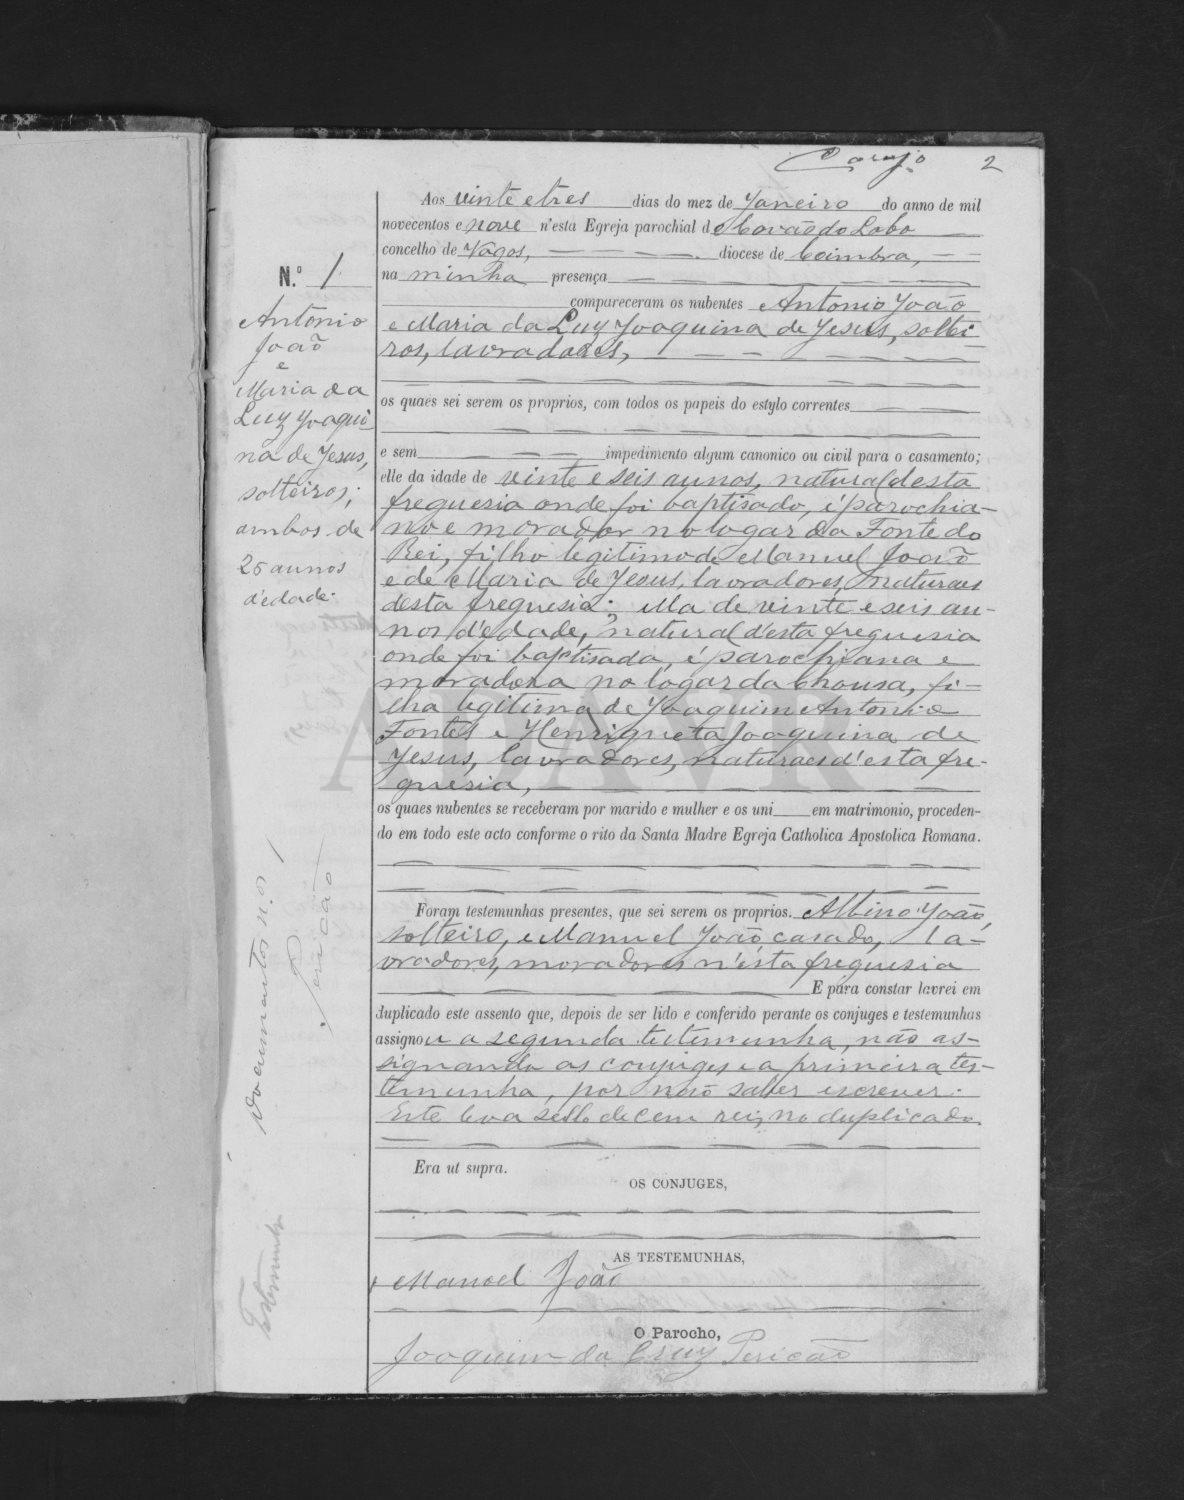 Carujo 2
Aos vinte e tres dias do mez de Janeiro do anno de mil
novecentos e nove n'esta Egreja parochial de Covão do Lobo
concelho de Vagos, diocese de Coimbra,
na minha presença
compareceram os nubentes Antonio João
e Maria da Luz Joaquina de Jesus, soltei
ros, lavradores,
os quaes sei serem os proprios, com todos os papeis do estylo correntes
e sem impedimento algum canonico ou civil para o casamento;
elle da idade de vinte e seis annos, natural desta
freguesia onde foi baptisado, é parochia-
no e morador no logar da Fonte do
Rei, filho legitimo de Manuel João
e de Maria de Jesus, lavradores, naturaes
desta freguesia; Ella de vinte e seis an-
nos d'edade, natural d'esta freguesia
onde foi baptisada, é parochiana e
moradora no logar da Chousa, fi-
lha legitima de Joaquim Antonio
Fontes e Henriqueta Joaquina de
Jesus, lavradores, naturaes d'esta fre-
guesia,
os quaes nubentes se receberam por marido e mulher e os uni em matrimonio, proceden-
do em todo este acto conforme o rito da Santa Madre Egreja Catholica Apostolica Romana.
Foram testemunhas presentes, que sei serem os proprios. Albino João,
solteiro, e Manuel João, casado, la-
vradores, moradores n'esta freguesia
E para constar lavrei em
duplicado este assento que, depois de ser lido e conferido perante os conjuges e testemunhas
assignou a segunda testemunha, não as-
signando os conjuges e a primeira tes-
temunha, por não saber escrever.
Este leva sello de cem reis no duplicado.
Era ut supra.
OS CONJUGES,
AS TESTEMUNHAS,
Manoel João
O Parocho,
Joaquim da Cruz Pericão
N.º 1
Antonio
João
e
Maria da
Luz Joaqui-
na de Jesus,
solteiros;
ambos de
26 annos
d'edade.
Documentos n.os 1
Pericão
ADAVR